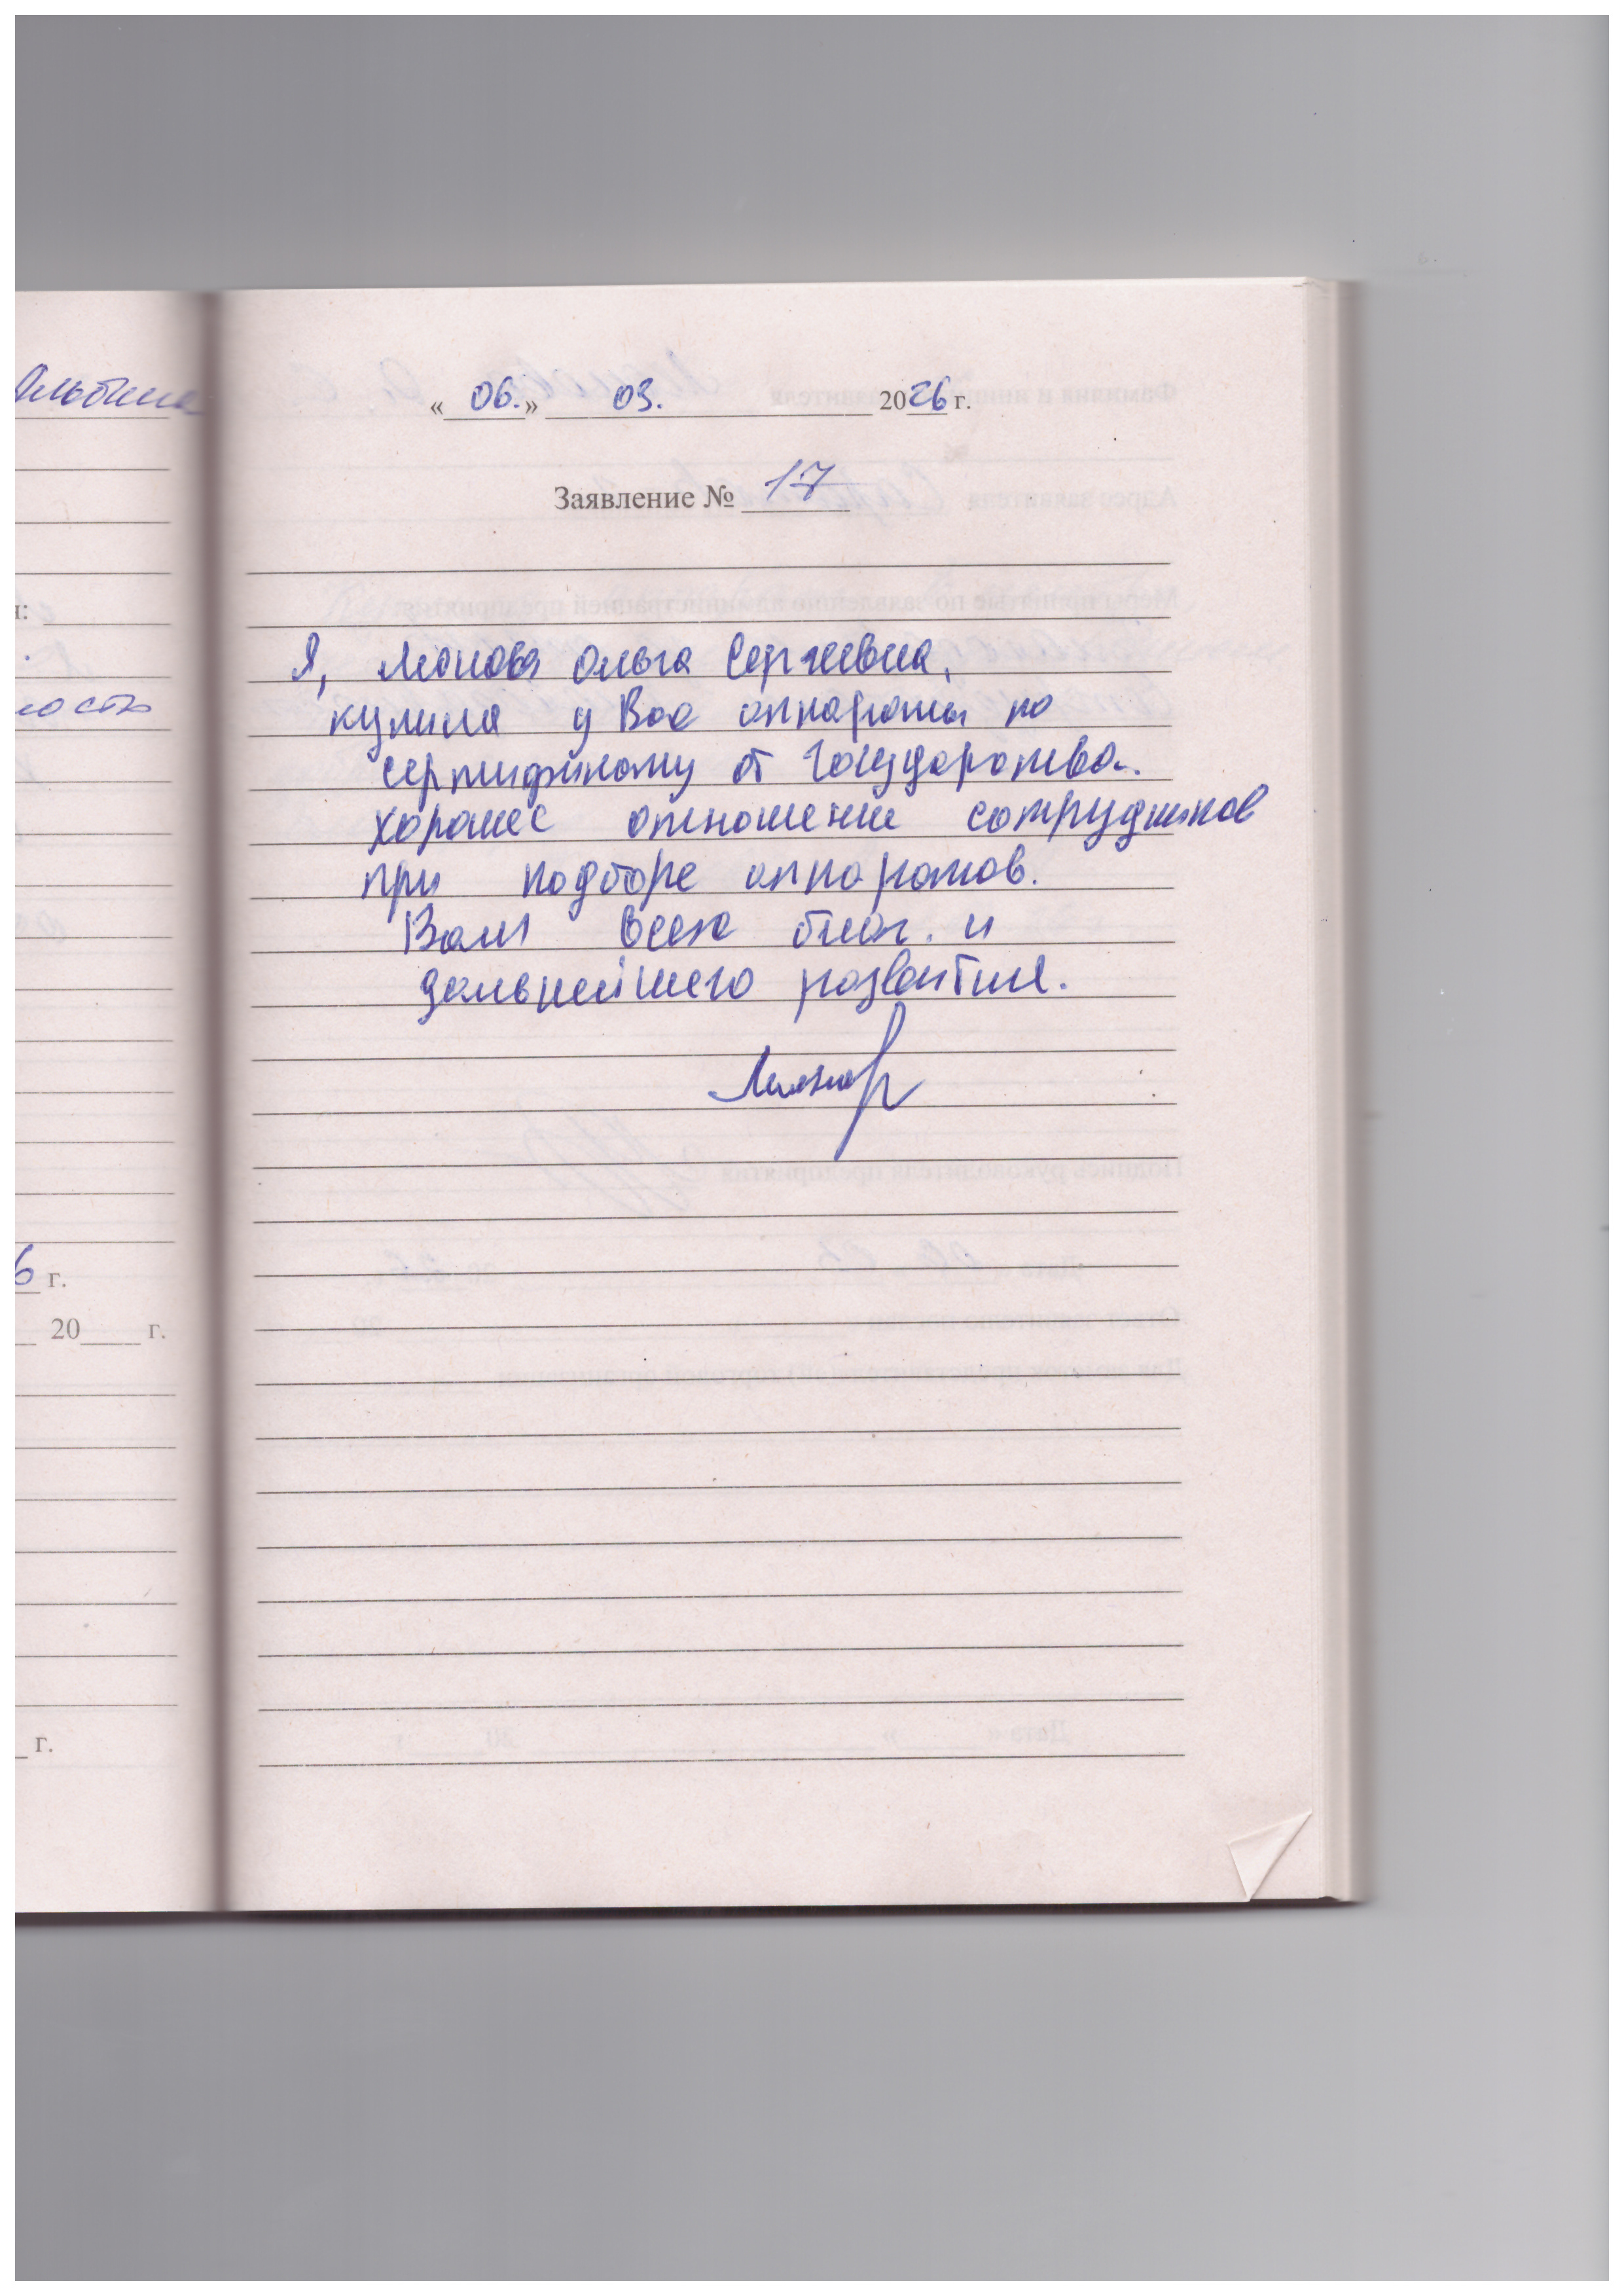 « 06. » 03. 2026 г.
Заявление № 17
Я, Леонова Ольга Сергеевна,
купила у Вас аппараты по
сертификату от Государства.
Хорошее отношение сотрудников
при подборе аппаратов.
Вам всех благ. и
дальнейшего развития.
г.
20 г.
г.